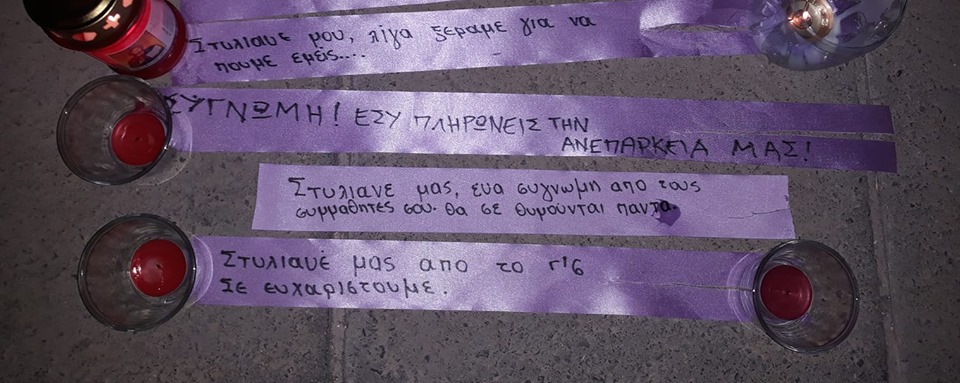 Στυλιανέ μου, λίγα ξέραμε για να
πούμε εμείς....
ΣΥΓΝΩΜΗ! ΕΣΥ ΠΛΗΡΩΝΕΙΣ ΤΗΝ
ΑΝΕΠΑΡΚΕΙΑ ΜΑΣ!
Στυλιανε μας, ενα συγνωμη απο τους
συμμαθητές σου. θα σε θυμούνται παντα.
Στυλιανέ μας απο το Γ'6
Σε ευχαριστουμε.